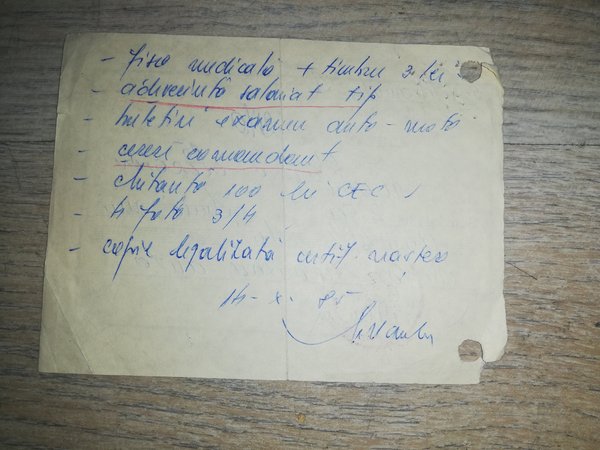 - fisa medicală + timbru 3 lei
- adeverință salariat tip
- buletin examen auto-moto
- cerere comandant
- chitanță 100 lei CEC
- 4 foto 3/4
- copie legalizată certif. naștere
14-X-85